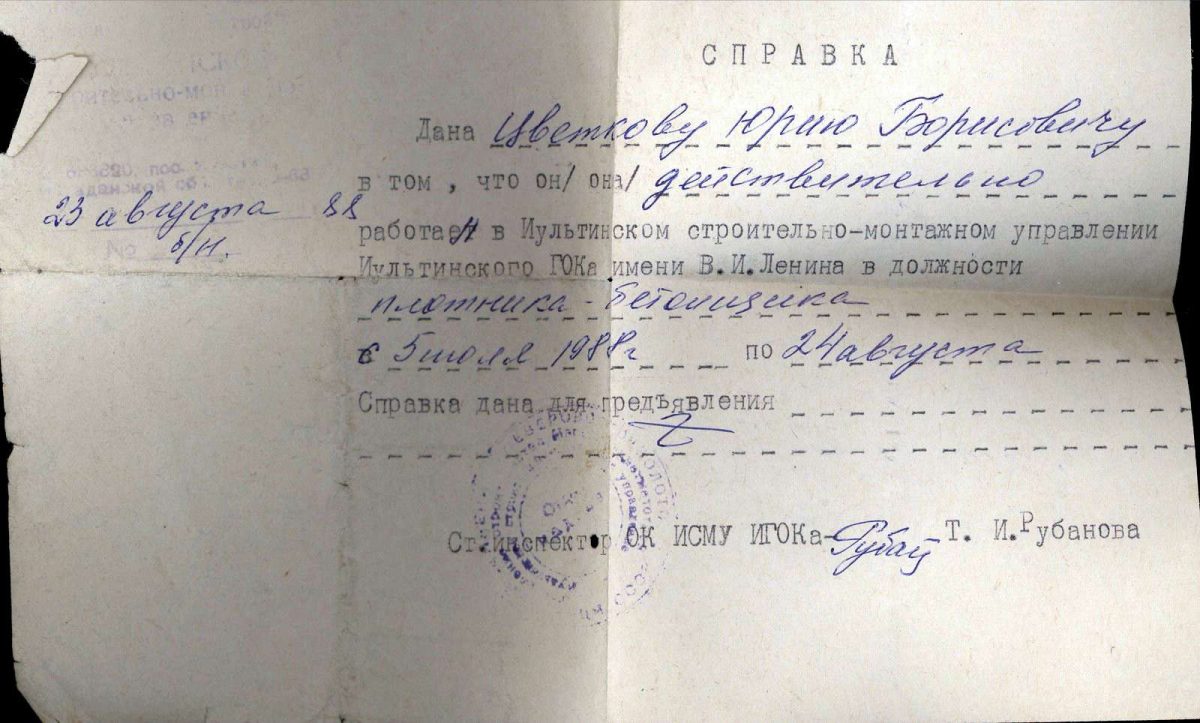 СПРАВКА
Дана Цветкову Юрию Борисовичу
в том, что он/ она/ действительно
23 августа 88
б/н.
работал в Иультинском строительно-монтажном управлении
Иультинского ГОКа имени В.И.Ленина в должности
плотника - бетонщика
с 5 июля 1988г по 24 августа
Справка дана для предъявления
Ст.инспектор ОК ИСМУ ИГОКа- Рубан Т. И.Рубанова